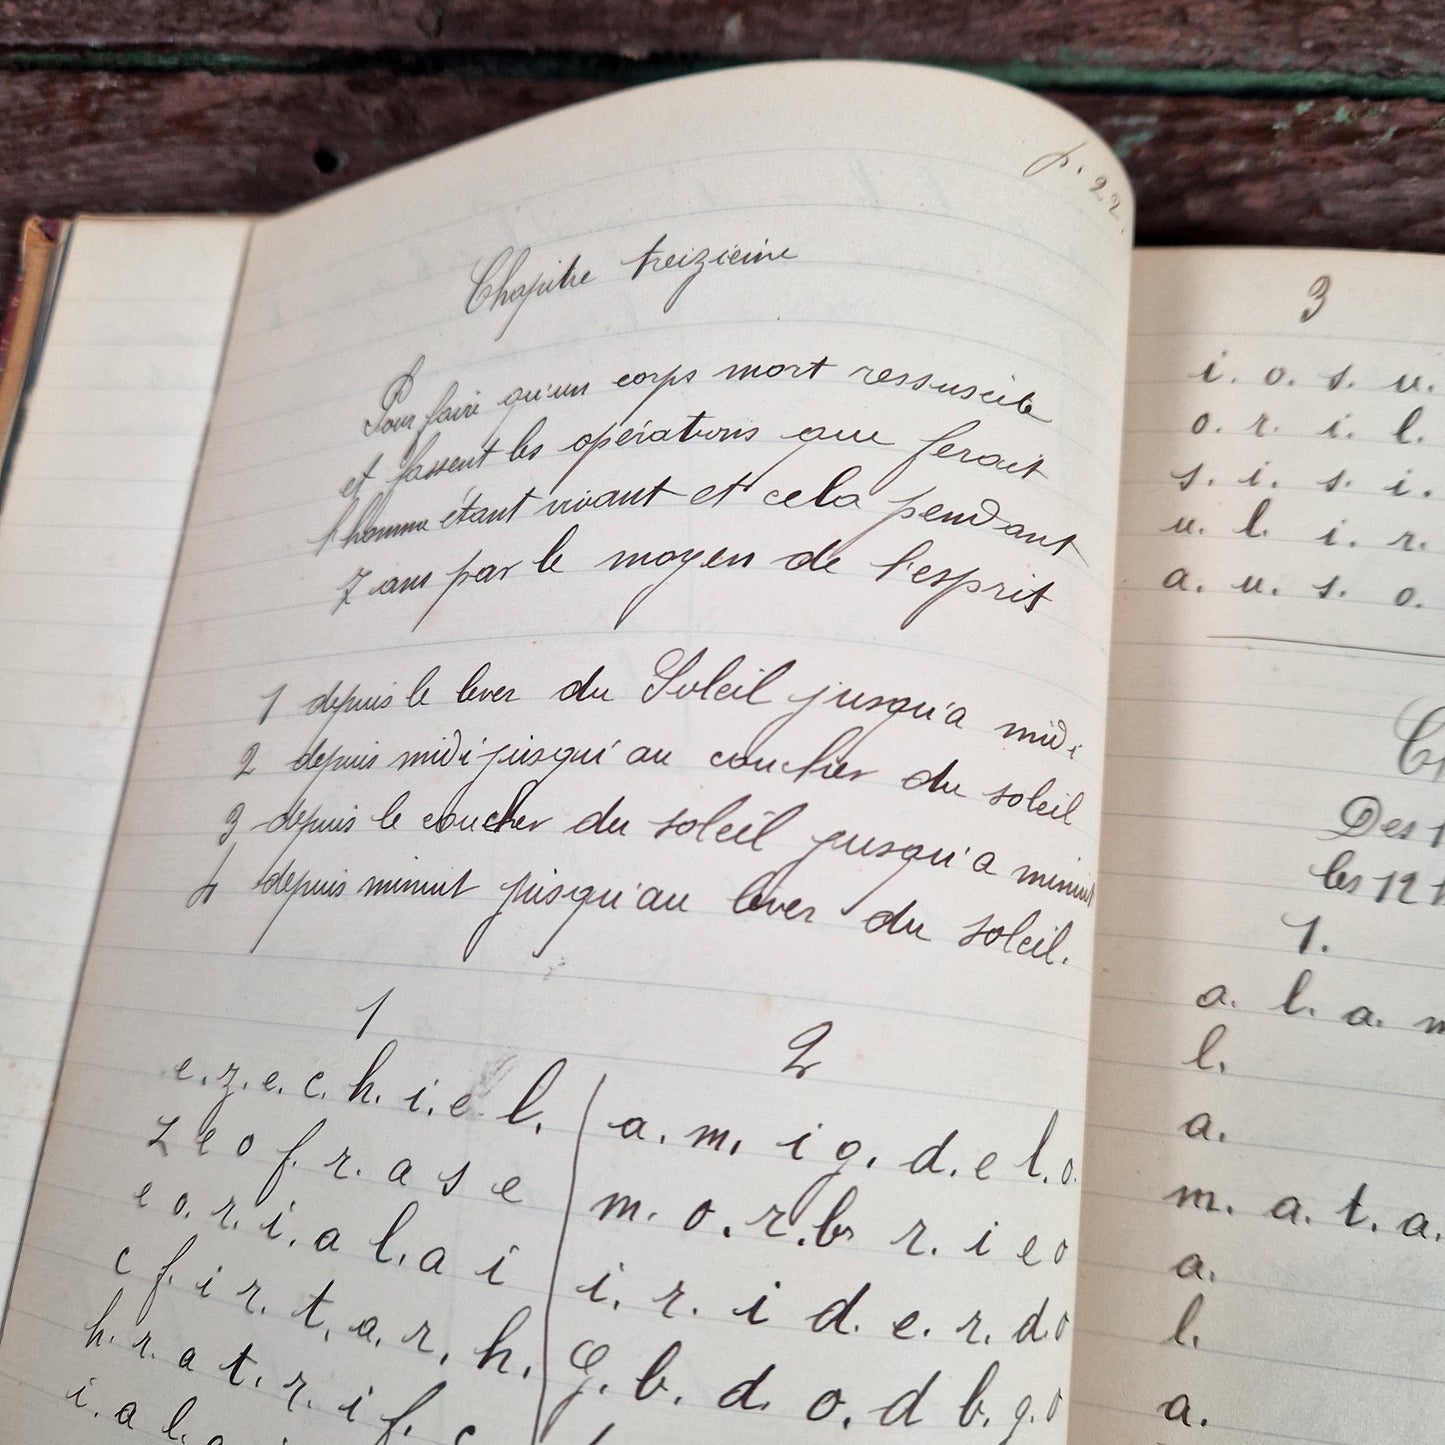 p. 22.
Chapitre treizième
Pour faire qu'un corps mort ressuscite
et fassent les opérations que ferait
l'homme étant vivant et cela pendant
7 ans par le moyen de l'esprit
1 depuis le lever du Soleil jusqu'a midi
2 depuis midi jusqu'au coucher du soleil
3 depuis le coucher du soleil jusqu'a minuit
4 depuis minuit jusqu'au lever du soleil.
1
e. z. e. c. h. i. e. l.
z e o f. r. a s e
e o. r. i. a l. a i
c f. i r. t. a. r. h.
h. r. a t. r. i f. c
i. a l. a
2
a. m. i g. d. e l. o.
m. o. r. b r. i e o
i. r. i d. e. r. d. o
g. b. d. o. d b. g. o
3
i. o. s. u.
o. r. i. l.
s. i. s. i.
u. l. i. r.
a. u. s. o.
Des
les 12
1.
a. l. a. m
l.
a.
m. a. t. a.
a.
l.
a.